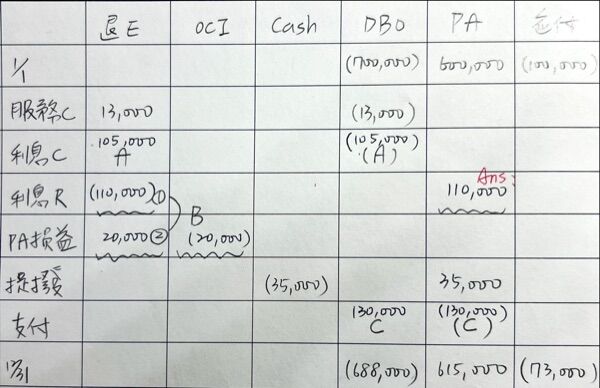 退E OCI Cash DBO PA 應付
1/1 (700,000) 600,000 (100,000)
服務C 13,000 (13,000)
利息C 105,000 (105,000)
A (A)
Ans:
利息R (110,000)① 110,000
B
PA損益 20,000② (20,000)
提撥 (35,000) 35,000
支付 130,000 (130,000)
C (C)
12/31 (688,000) 615,000 (73,000)